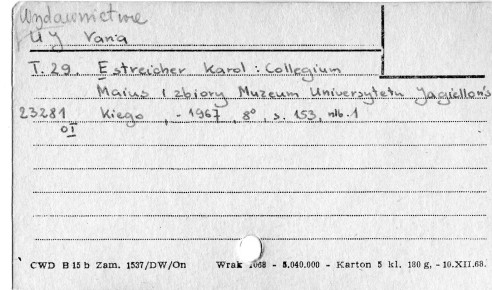 Wydawnictwo
UJ Varia
T. 29. Estreicher Karol : Collegium
Maius i zbiory Muzeum Uniwersytetu Jagielloňs
23281 kiego , - 1967 , 8° , s. 153, nlb. 1
OI
CWD B 15 b Zam. 1537/DW/On Wrak 1068 - 5.040.000 - Karton 5 kl. 180 g, - 10.XII.68.